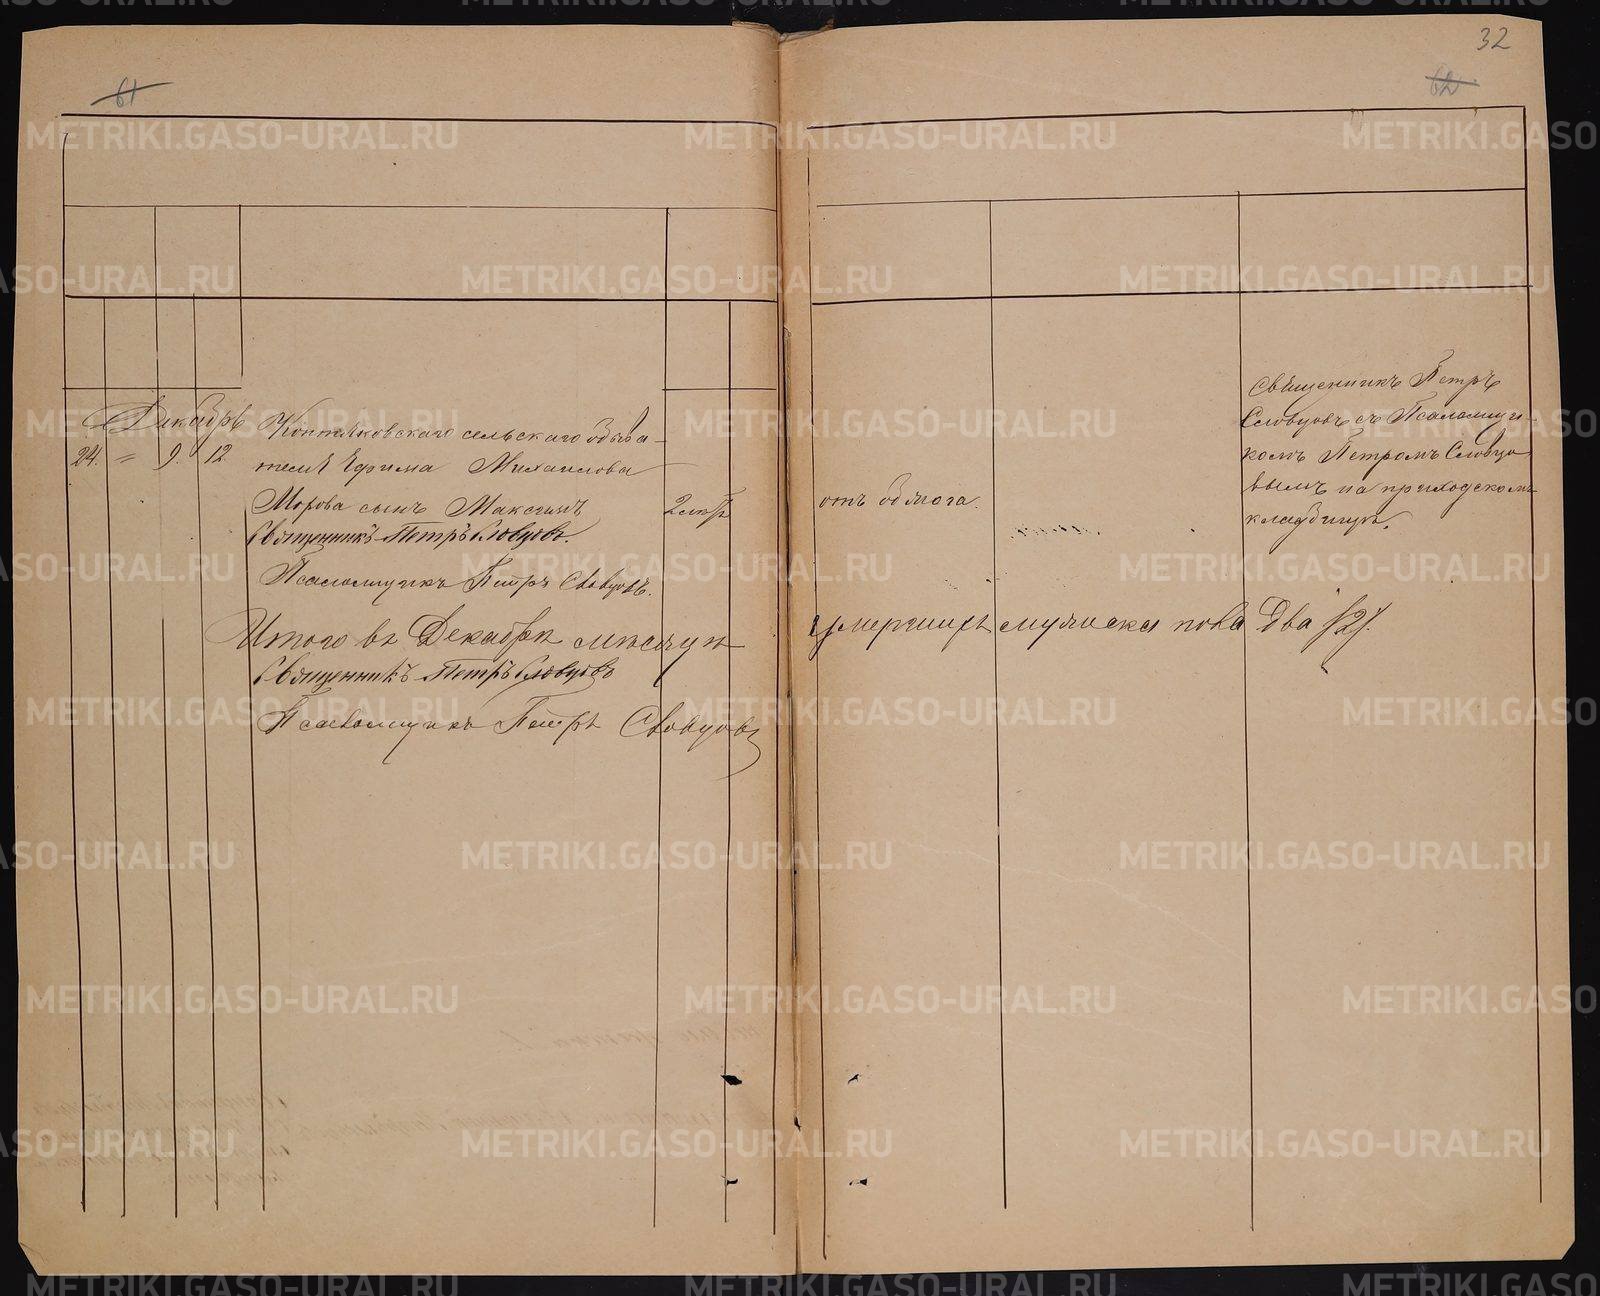 32
61
62
Декабрь
24. = 9. 12.
Коптяковскаго сельскаго обыва-
теля Ефима Михаилова
Морова сынъ Максимъ
2 мѣс.
Священникъ Петръ Словцовъ.
Псаломщикъ Петръ Словцовъ.
отъ
Священникъ Петръ
Словцовъ съ Псаломщи-
комъ Петромъ Словцо
вымъ на приходскомъ
кладбищѣ.
Итого въ Декабрѣ мѣсяцѣ умершихъ мужска пола Два /2/.
Священникъ Петръ Словцовъ
Псаломщикъ Петръ Словцовъ
METRIKI.GASO-URAL.RU